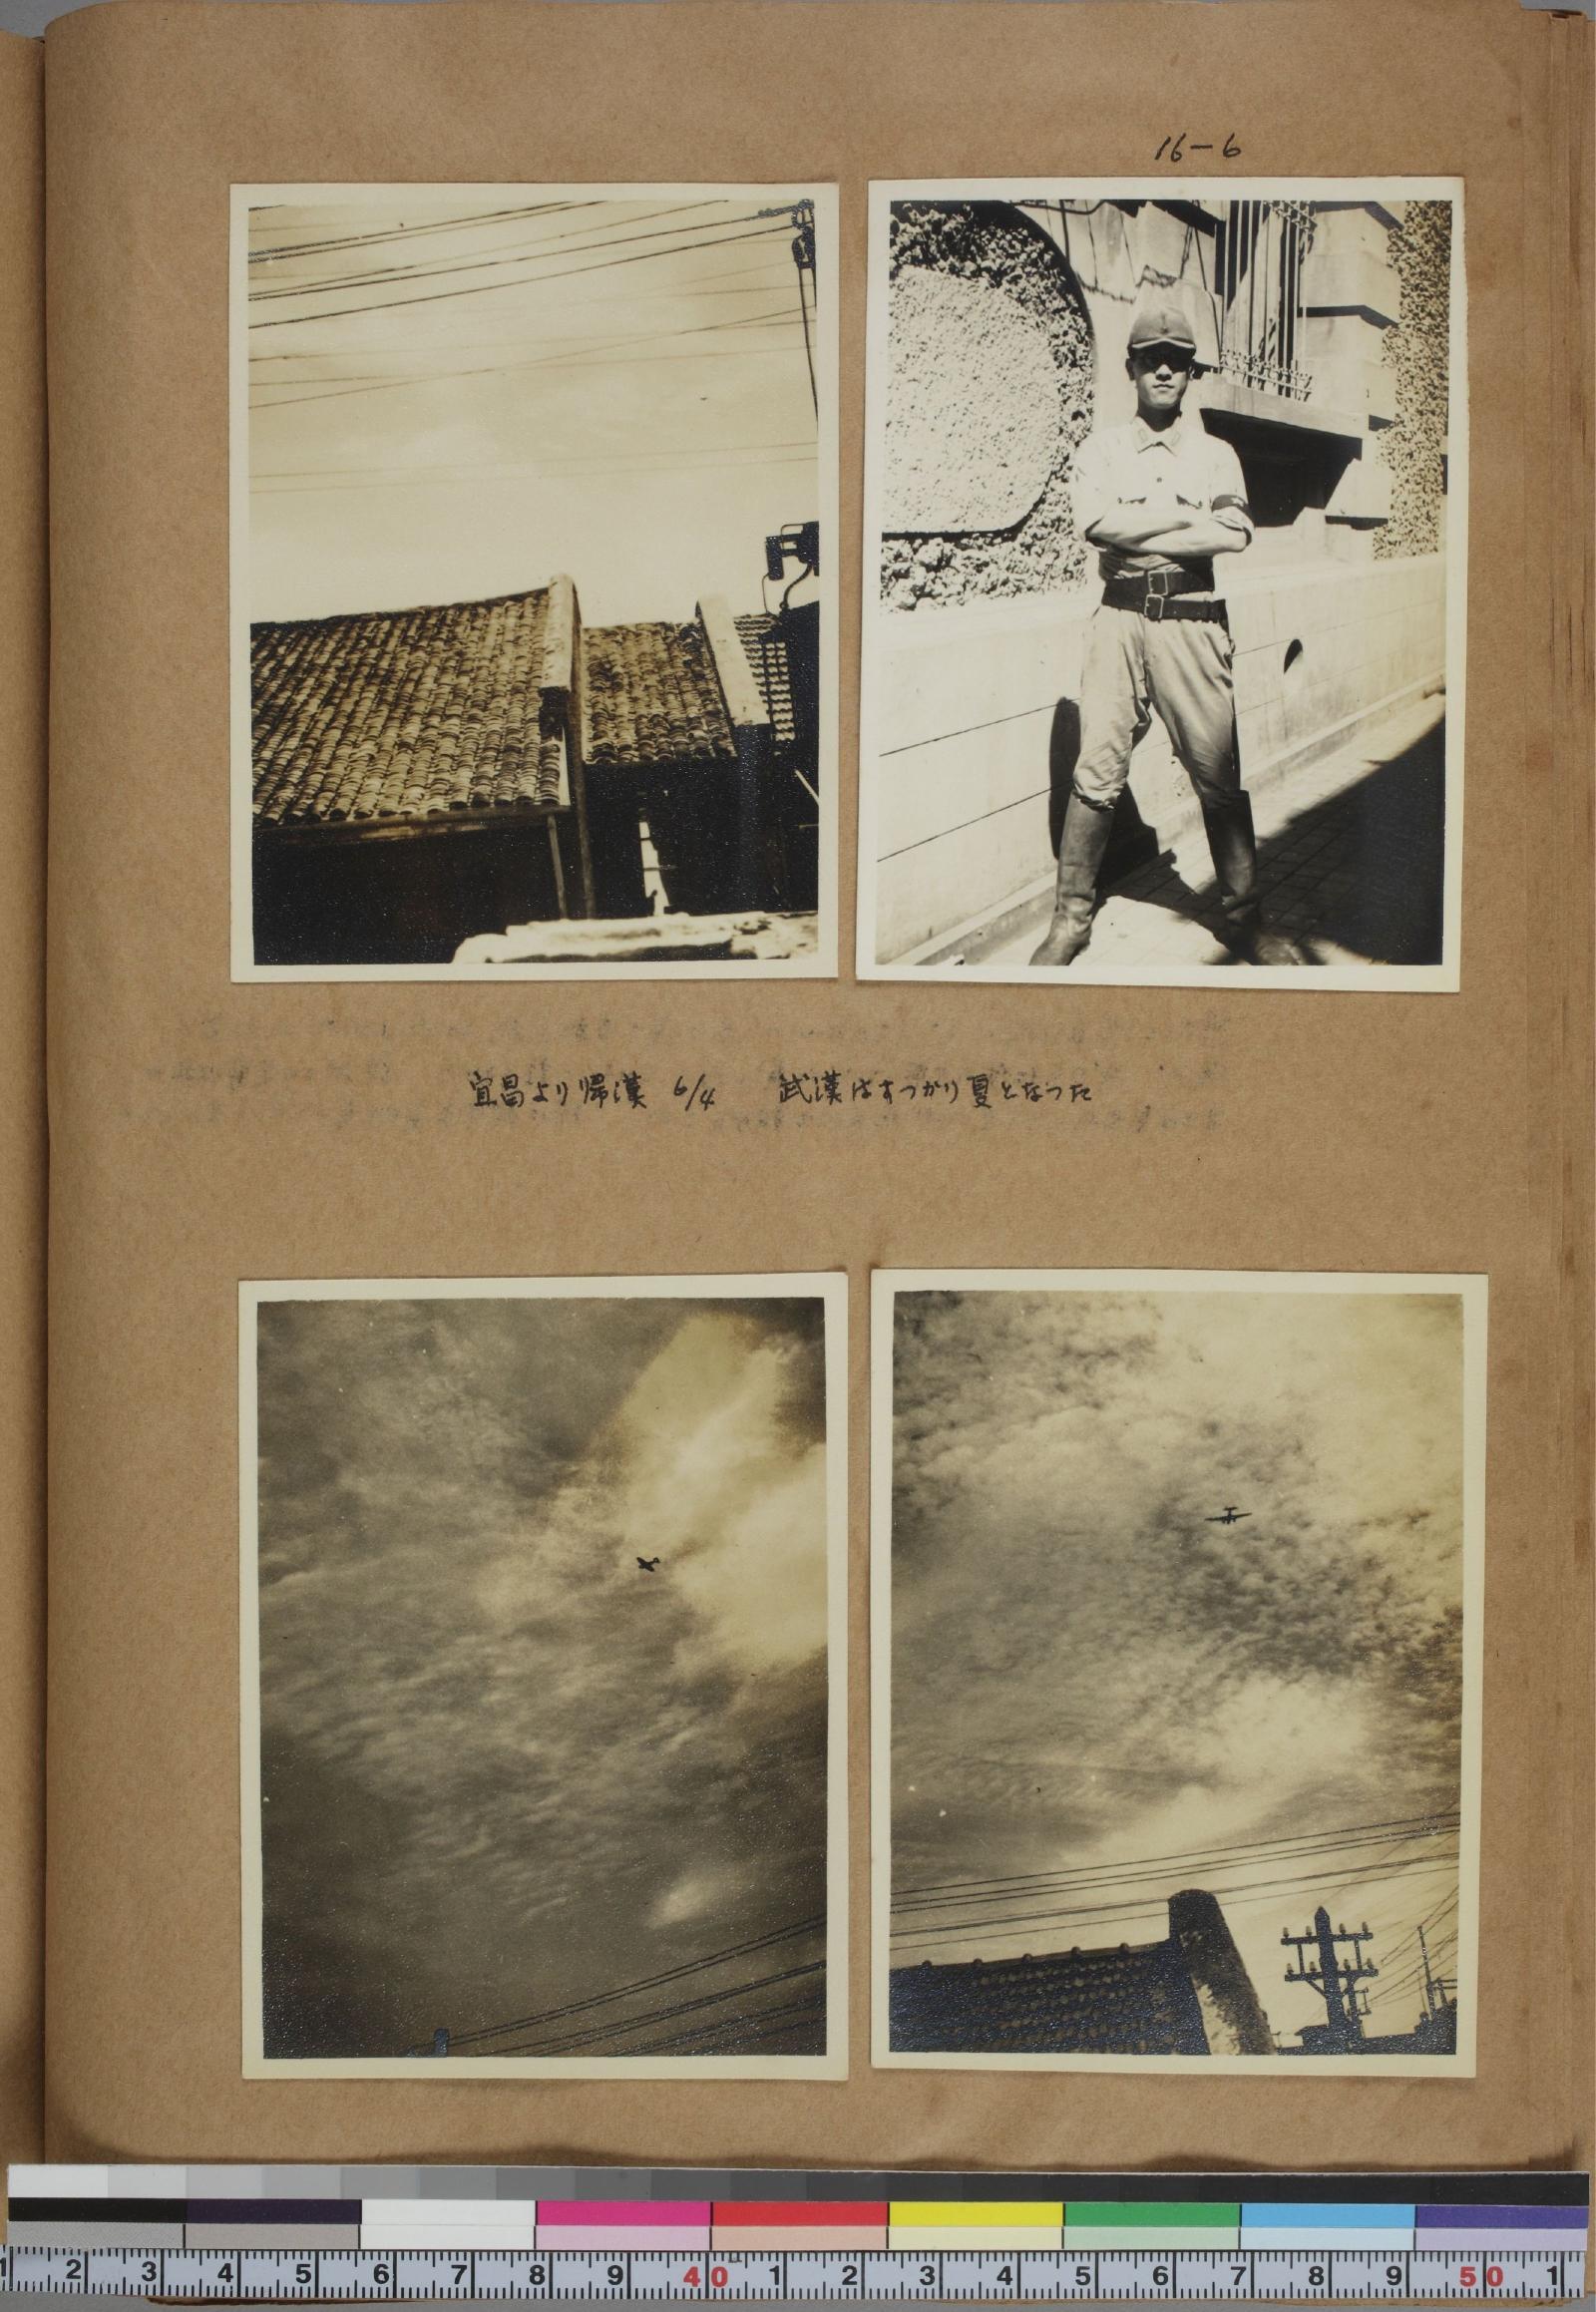 16-6
宜昌より帰漢 6/4 武漢はすつかり夏となつた
1 2 3 4 5 6 7 8 9 40 1 2 3 4 5 6 7 8 9 50 1